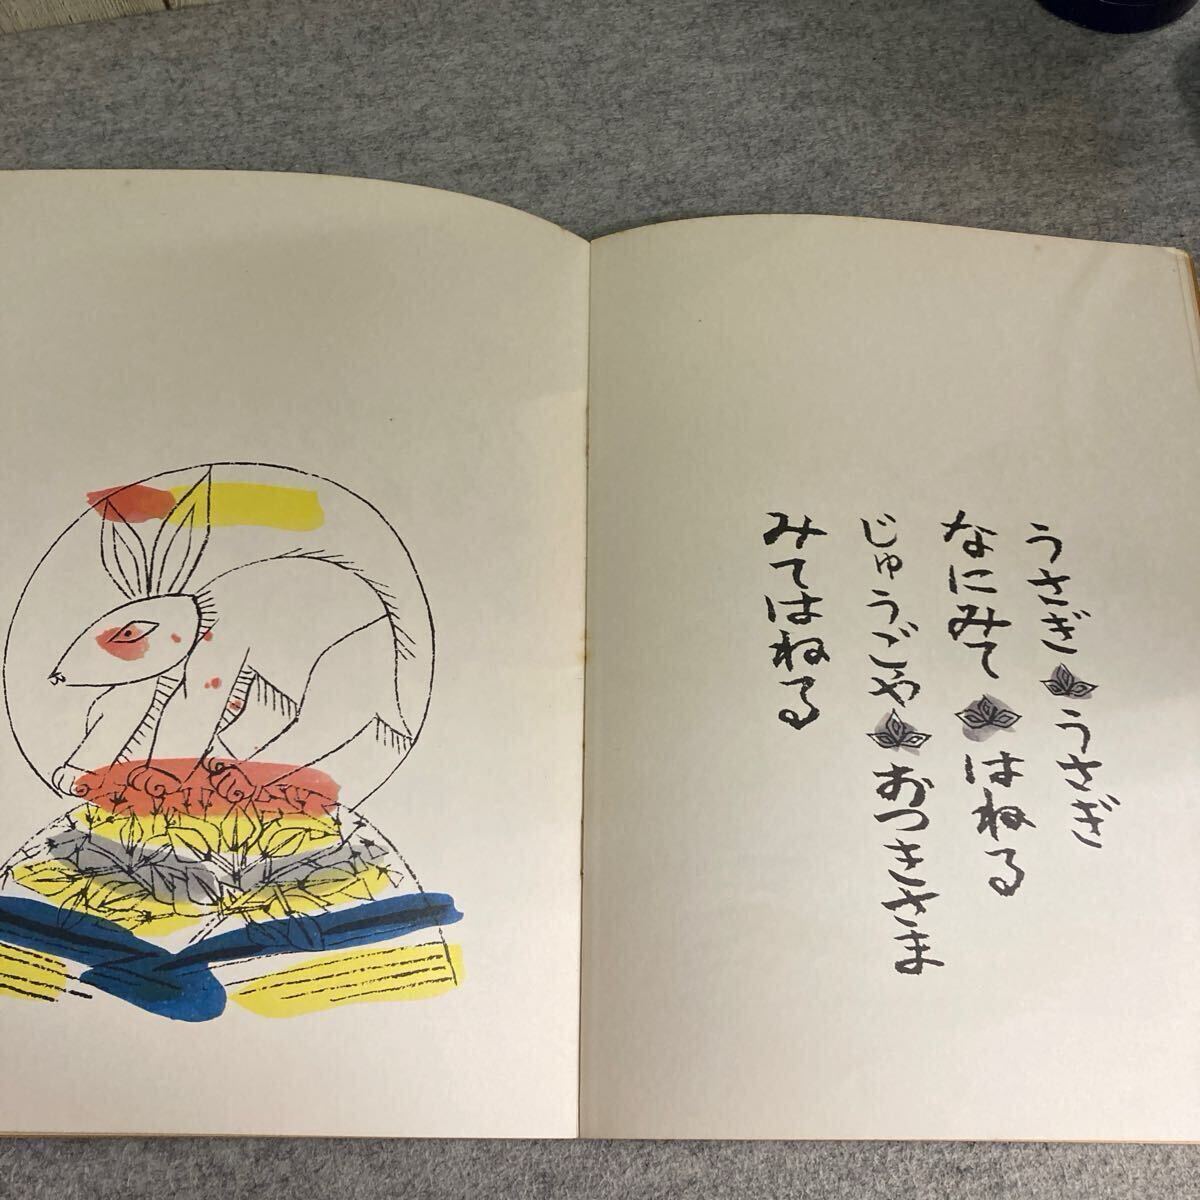 うさぎ うさぎ
なにみて はねる
じゅうごや おつきさま
みてはねる